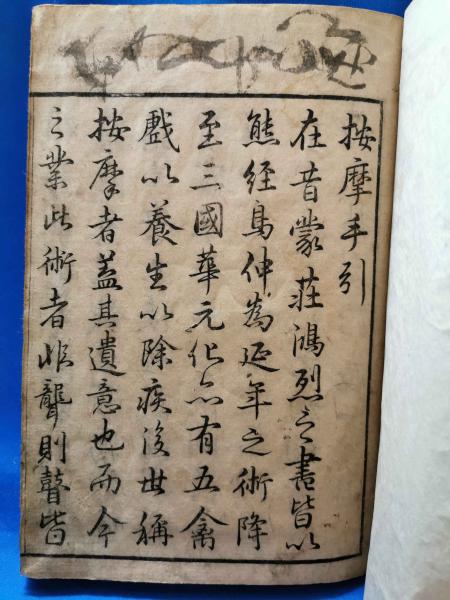 按摩手引
在昔蒙莊鴻烈之書皆以
熊經鳥伸為延年之術降
至三國華元化亦有五禽
戲以養生以除疾後世稱
按摩者蓋其遺意也而今
之業此術者非聾則瞽皆